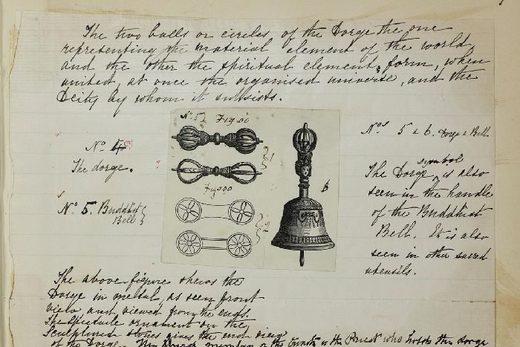 The two balls or circles, of the Dorge the one
representing the material element of the world,
and the other the spiritual element, form, when
united, at once the organised universe, and the
Deity by whom it subsists.
No 4
The dorge.
No 5. Buddhist
Bell
No 5
6
Nos 5 & 6. Dorge & Bell
The Dorge symbol is also
seen in the handle
of the Buddhist
Bell. It is also
seen in other sacred
utensils.
The above figure shews the
Dorge in metal, as seen front
view and viewed from the ends.
The ornament on the
sculptured gives the end view
of the Dorge. the Priest who holds the dorge